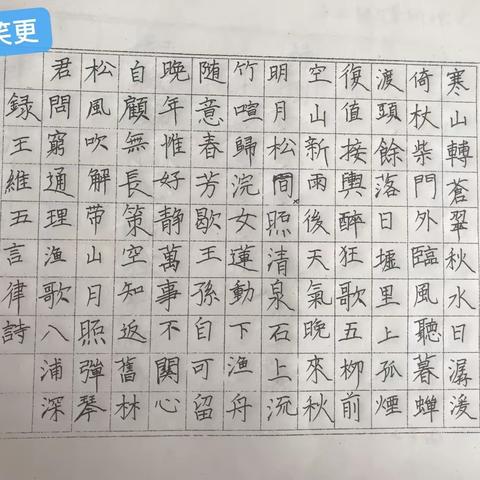 笑更
寒山轉蒼翠秋水日潺湲
倚杖柴門外臨風聽暮蟬
渡頭餘落日墟里上孤煙
復值接輿醉狂歌五柳前
空山新雨後天氣晚來秋
明月松間照清泉石上流
竹喧歸浣女蓮動下漁舟
随意春芳歇王孫自可留
晚年惟好静萬事不關心
自顧無長策空知返舊林
松風吹解带山月照彈琴
君問窮通理漁歌八浦深
録王維五言律詩